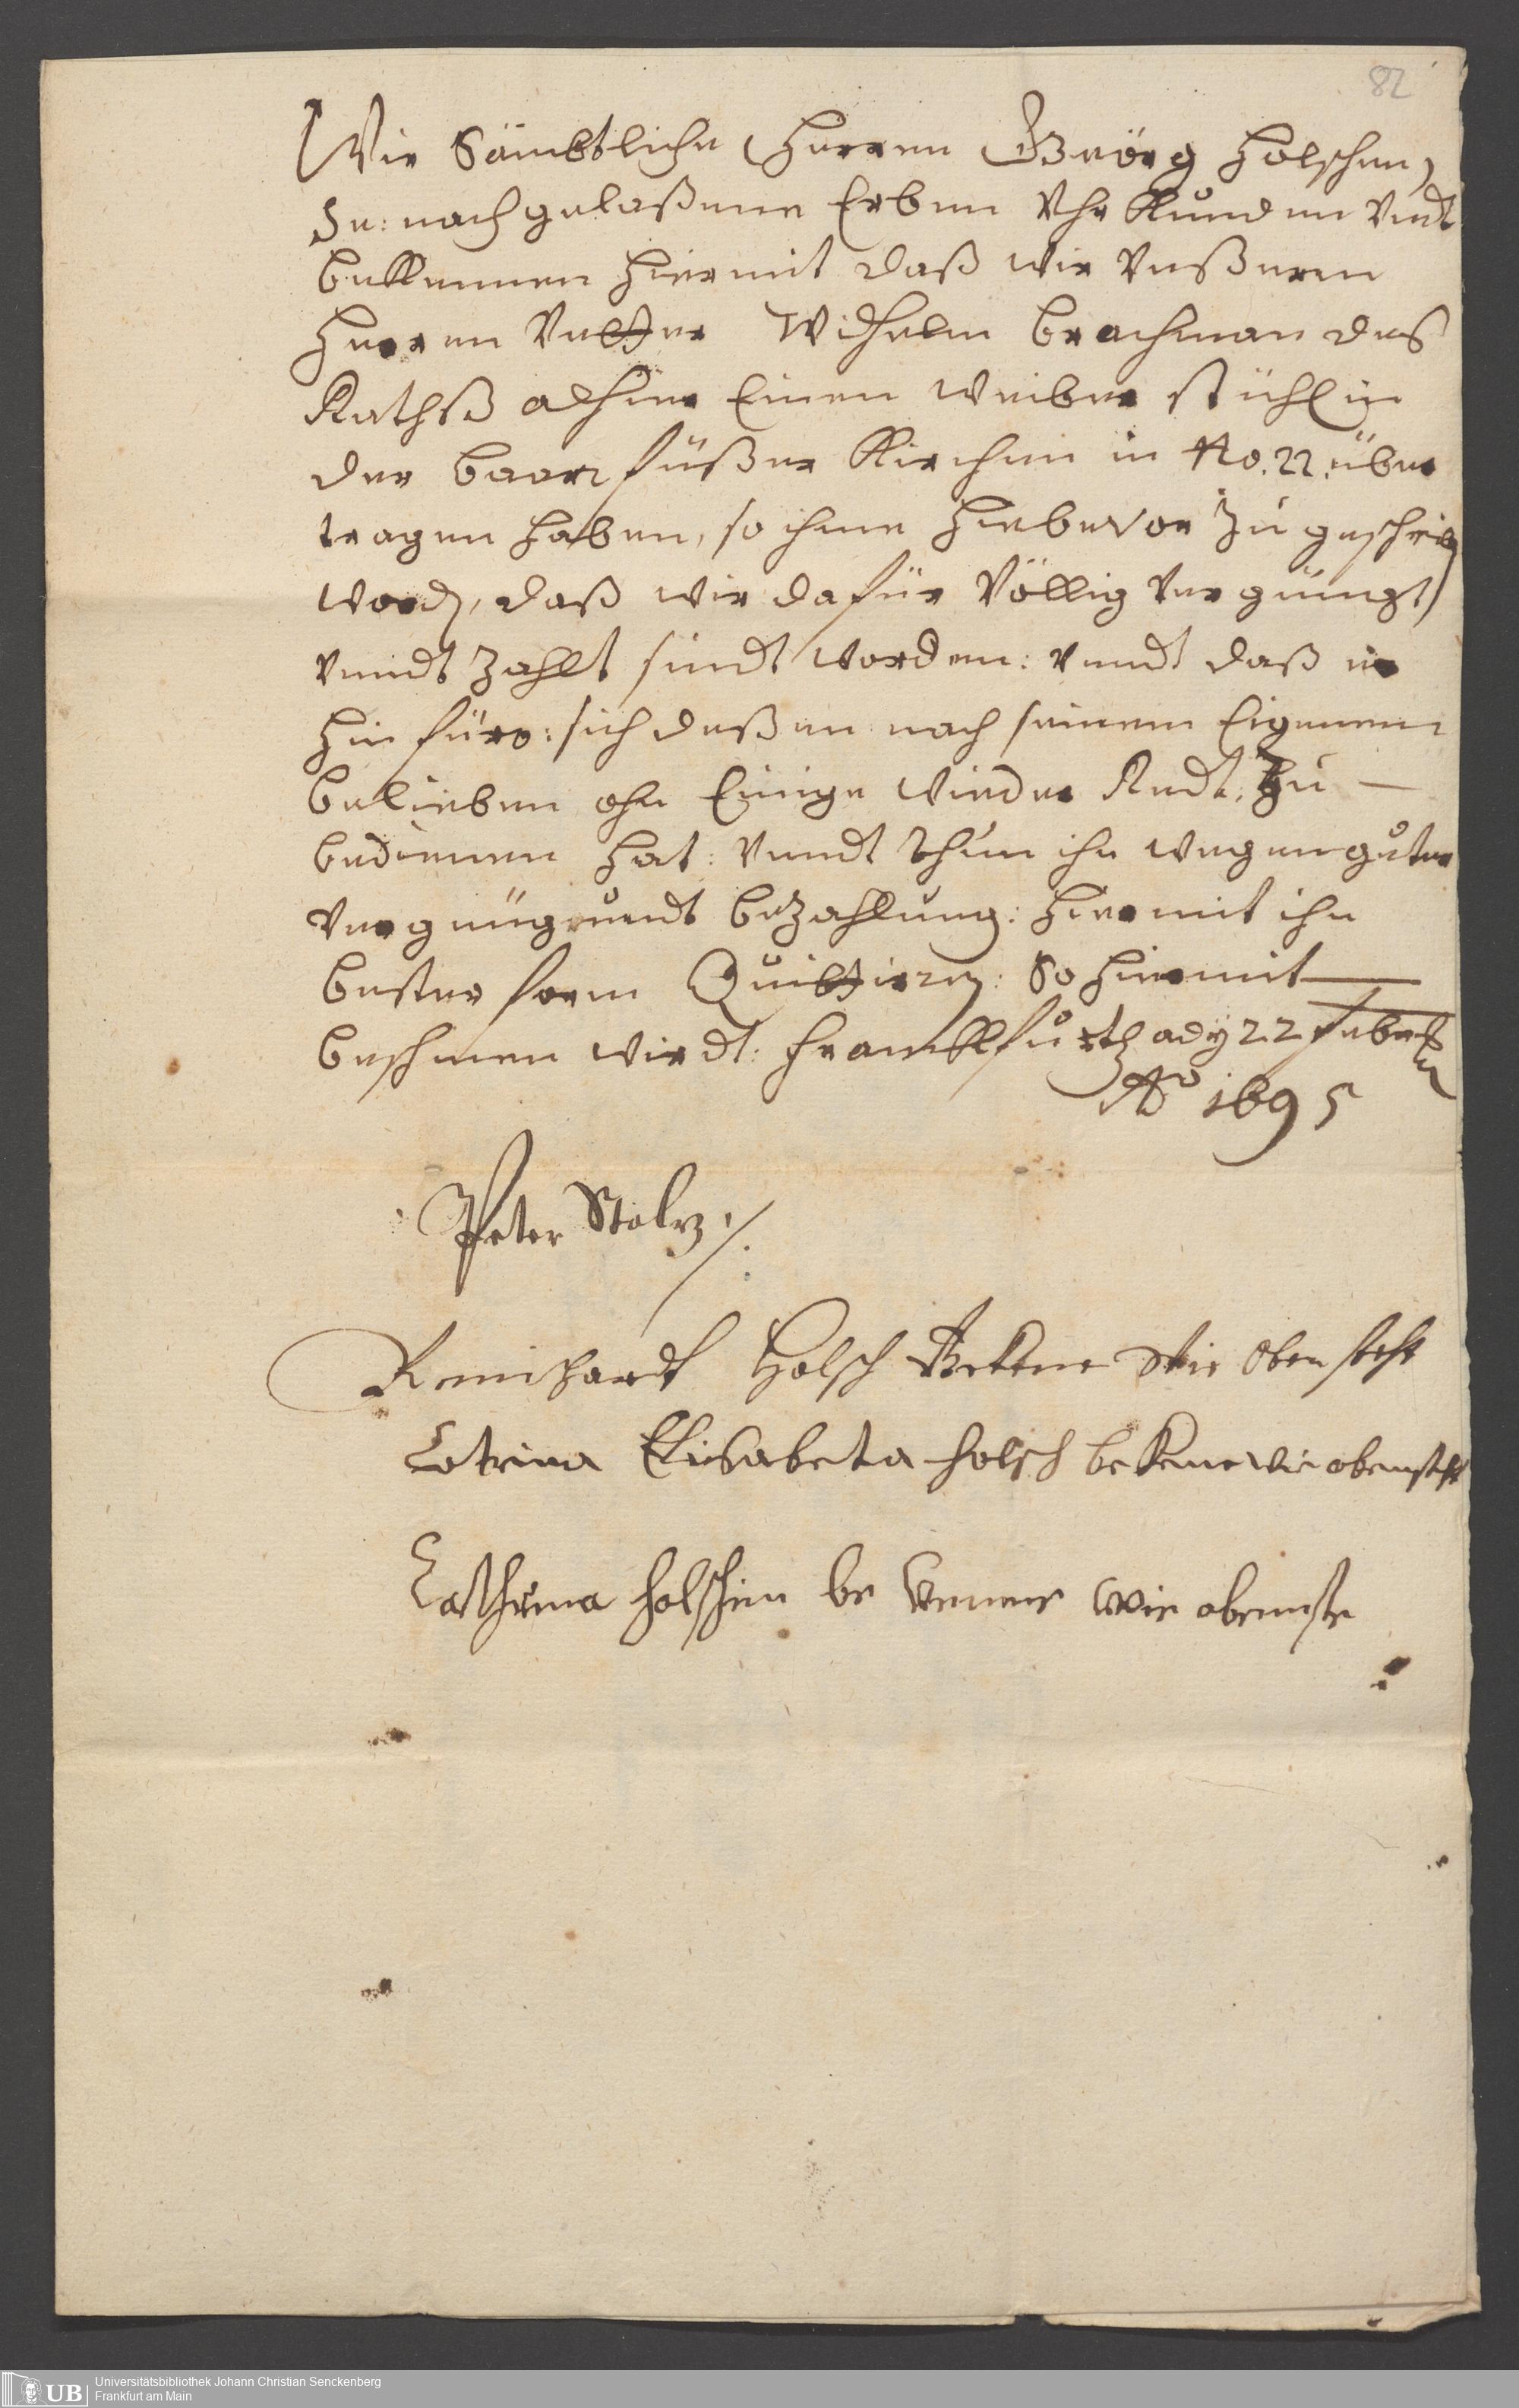 82
Wir Sämbtliche Herren Geörg Holschen,
Se: nachgelaßene Erben Uhrkunden Vndt
bekennen hiermit daß wir Vnßeren
Herren Vetter Wilhelm Brachman deß
Rathß alhier Einen weiber stühl in
der baarfüßer Kirchen in No. 22. über
tragen haben, so ihme hiebevor zu geschrieb
word, daß wir dafür Völlig Vergnügt
Vnndt Zahlt sindt worden: Vnndt daß er
hin füro: sich deßen nach seinem Eigenem
belieben ohn Einige wieder Redt. zu
bedienen hat: Vnndt Thun ihn wegen guter
Vergnüg vndt bezahlung: hiermit ihn
bester form Quittieren: So hiermit
beschenen wirdt: franckfurth ady 22 feber
Ao 1695
Peter Stolz
Reinhardt Holsch Bekene wie oben steht
Catrina Elisabeta holsch bekene wie obensteht
Catthrina holschin be kenne wie obenste
UB Universitätsbibliothek Johann Christian Senckenberg
Frankfurt am Main